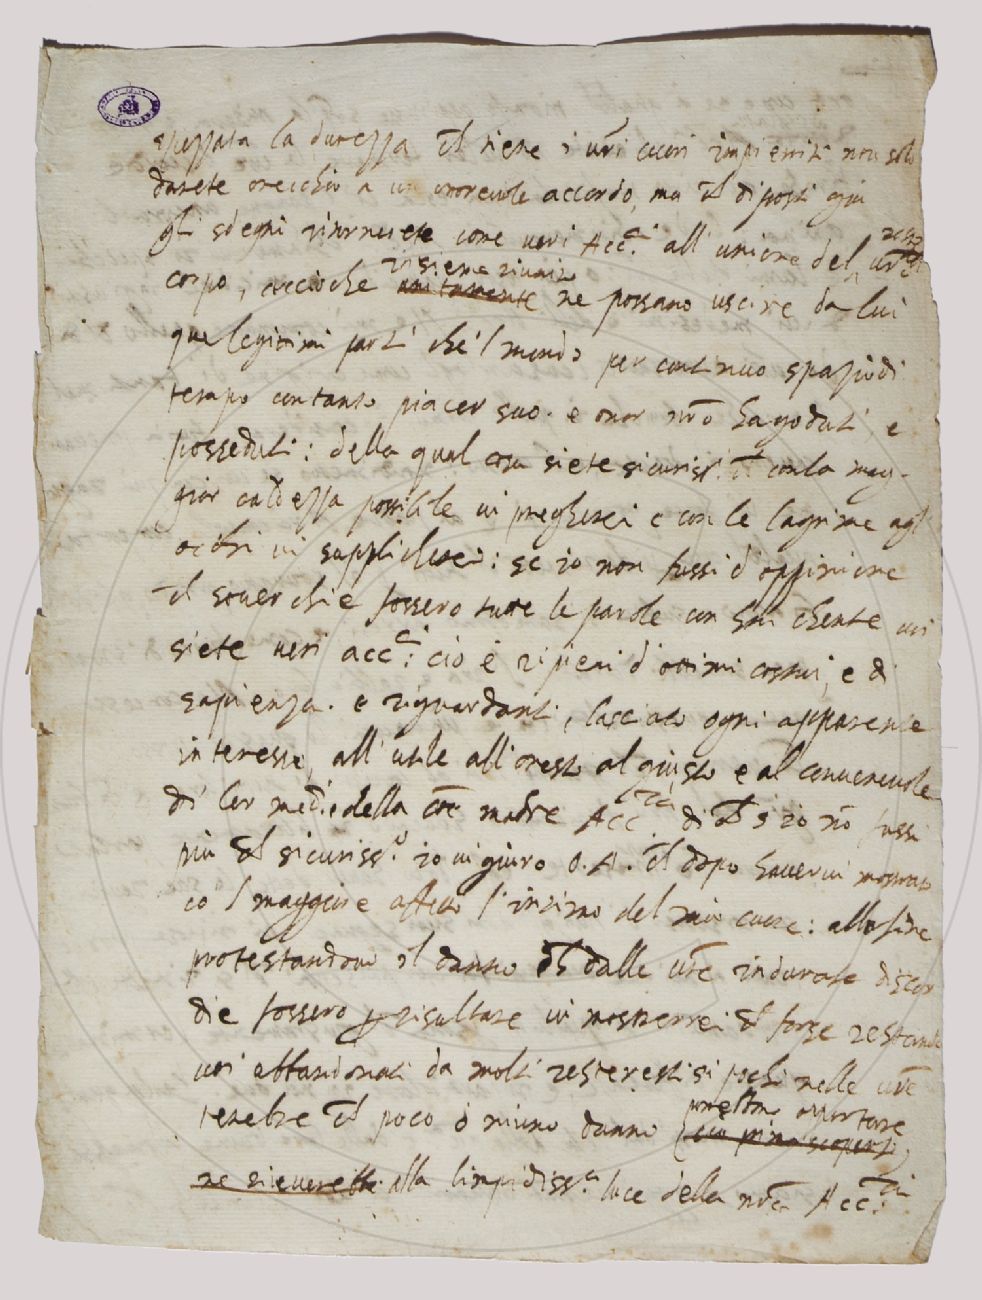 spezzata la durezza che tiene i vri cuori impietriti non solo
darete orecchio a un onorevole accordo, ma che diposti giu
gli sdegni ritornerete come veri Acc.ci all'unione del vrō
insieme riuniti
corpo, acciochè unitamente ne possano uscire da lui
que legitimi parti che 'l mondo per continuo spazio di
tempo con tanto piacer suo. e onor nrō ha goduti, e
posseduti: della qual cosa siete sicuriss.i che con la mag-
gior caldezza possibile vi pregherei e con le lagrime agl'
occhi vi supplicherei: se io non fussi d'oppinione
che soverchie fossero tutte le parole con chente voi
siete veri acc.ci: cio è ripieni d'ottimi costumi, e di
sapienza. e riguardanti, lasciato ogni apparente
interesse, all'utile all'onesto al giusto e al convenevole
di lor med.i e della com̄e madre Acc.ia di che s'io nō fussi
più che sicuriss.o io vi giuro O. A. che dopo havervi mostrato
co 'l maggiore affetto l'intimo del mio cuore: alla fine
protestandovi il danno che dalle vr̄e indurate discor
die fossero per risultare vi mostrerrei che forse restando
voi abbandonati da molti resteresti sì pochi nelle vr̄e
potessino apportare
tenebre che poco o niuno danno
ne riceverebbe alla limpidiss.a luce della nr̄a Acc.ia